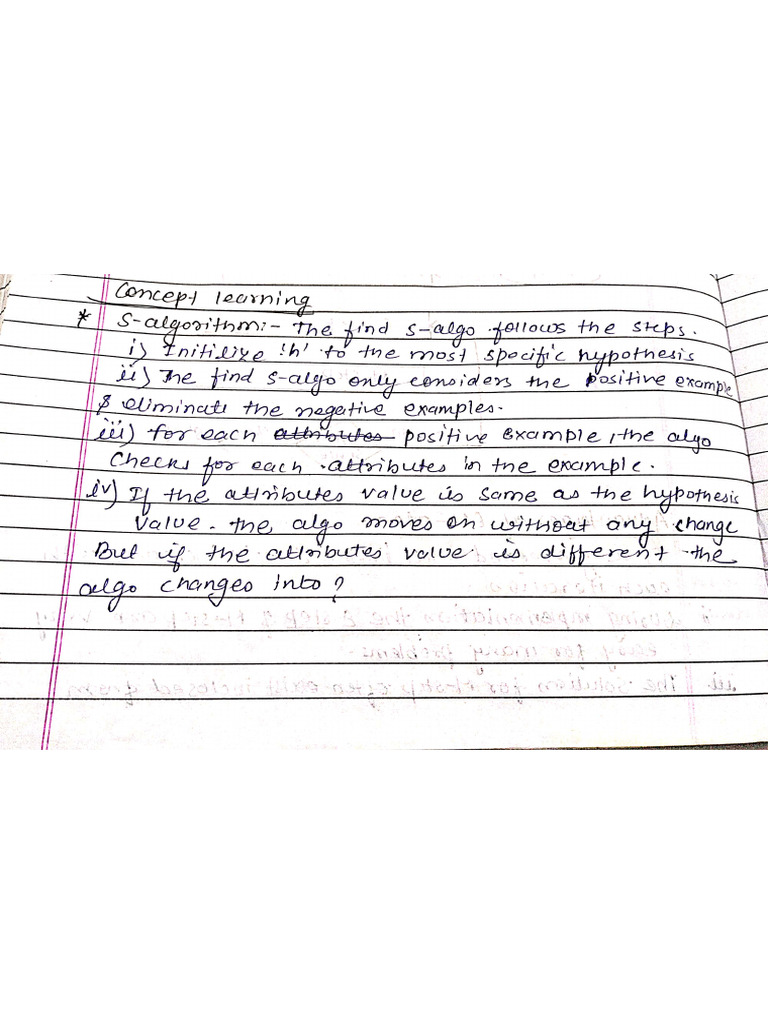 Concept learning
* S-algorithm:- The find s-algo follows the steps.
i) Initilize 'h' to the most specific hypothesis
ii) The find s-algo only considers the positive example
& eliminate the negative examples.
iii) for each attributes positive example, the algo
Checks for each attributes in the example.
iv) If the attributes value is same as the hypothesis
value. the algo moves on without any change
But if the attributes value is different the
algo changes into ?